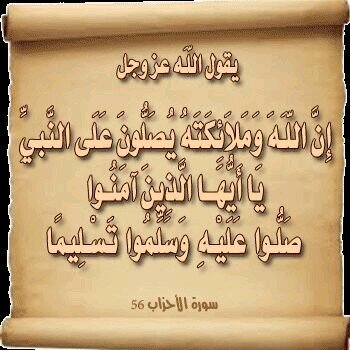 يقول الله عز وجل
إِنَّ اللَّهَ وَمَلَائِكَتَهُ يُصَلُّونَ عَلَى النَّبِيِّ
يَا أَيُّهَا الَّذِينَ آمَنُوا
صَلُّوا عَلَيْهِ وَسَلِّمُوا تَسْلِيمًا
سورة الأحزاب 56